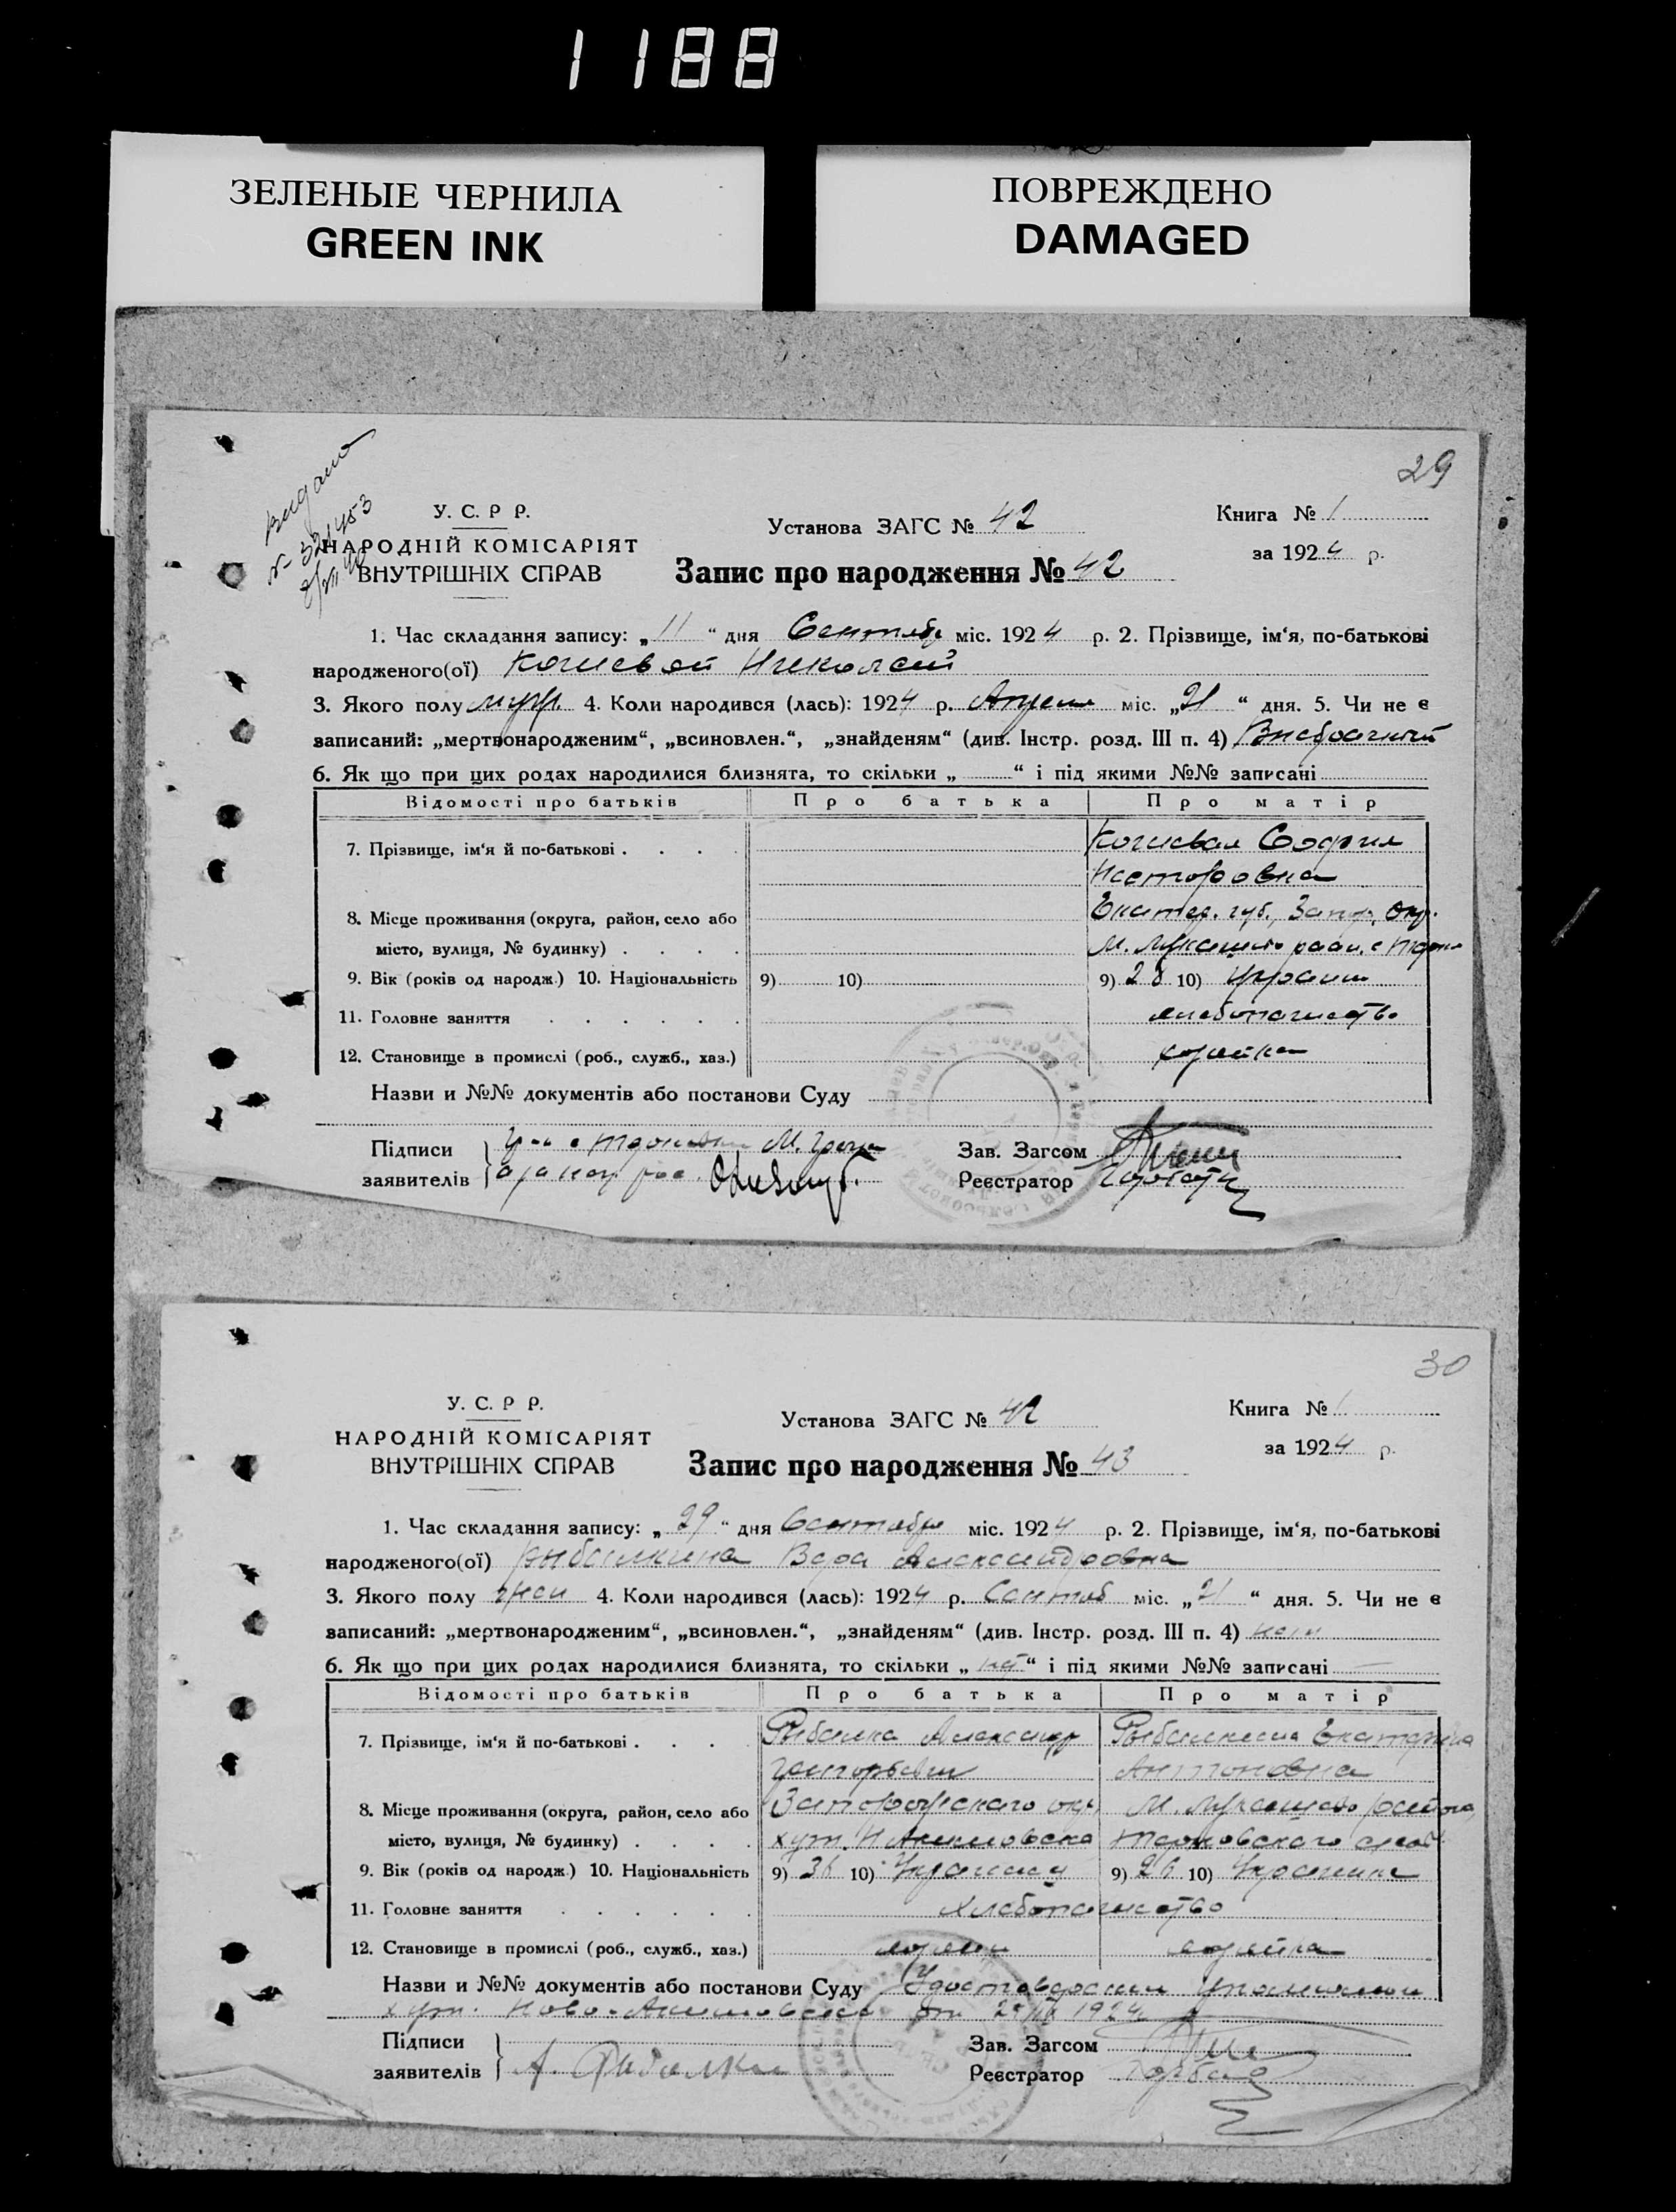 1188
ЗЕЛЕНЫЕ ЧЕРНИЛА
GREEN INK
ПОВРЕЖДЕНО
DAMAGED
29
У. С. Р Р.
НАРОДНІЙ КОМІСАРІЯТ
ВНУТРІШНІХ СПРАВ
Установа ЗАГС № 42
Запис про народження № 42
Книга № 1
за 1924 р.
1. Час складання запису: „11“ дня Сентябр міс. 1924 р. 2. Прізвище, ім‘я, по-батькові
народженого(ої) Кочевой Николай
3. Якого полу муж 4. Коли народився (лась): 1924 р. Апреля міс. „21“ дня. 5. Чи не є
записаний: „мертвонародженим“, „всиновлен.“, „знайденям“ (див. Інстр. розд. III п. 4) Внебрачный
6. Як що при цих родах народилися близнята, то скільки „ “ і під якими №№ записані
Відомості про батьків Про батька Про матір
7. Прізвище, ім‘я й по-батькові . . . . Кочевая София
Несторовна
8. Місце проживання (округа, район, село або Екатер. губ., Запор. окр.
місто, вулиця, № будинку) . . . . М.
9. Вік (років од народж.) 10. Національність 9) 10) 9) 28 10)
11. Головне заняття . . . . . . хлебопашество
12. Становище в промислі (роб., служб., хаз.) хозяйка
Назви и №№ документів або постанови Суду
Підписи
заявителів
Зав. Загсом
Реєстратор
30
У. С. Р Р.
НАРОДНІЙ КОМІСАРІЯТ
ВНУТРІШНІХ СПРАВ
Установа ЗАГС № 42
Запис про народження № 43
Книга № 1
за 1924 р.
1. Час складання запису: „29“ дня Сентября міс. 1924 р. 2. Прізвище, ім‘я, по-батькові
народженого(ої) Рыбалкина Вера Александровна
3. Якого полу жен 4. Коли народився (лась): 1924 р. Сентяб міс. „21“ дня. 5. Чи не є
записаний: „мертвонародженим“, „всиновлен.“, „знайденям“ (див. Інстр. розд. III п. 4) нет
6. Як що при цих родах народилися близнята, то скільки „нет“ і під якими №№ записані —
Відомості про батьків Про батька Про матір
7. Прізвище, ім‘я й по-батькові . . . . Рыбалка Александр Рыбалкина Екатерина
Антоновна
8. Місце проживання (округа, район, село або Запорожскаго окр. М. района,
місто, вулиця, № будинку) . . . . хут. Н
9. Вік (років од народж.) 10. Національність 9) 36 10) Украинец 9) 26 10) Украинка
11. Головне заняття . . . . . . Хлебопашество
12. Становище в промислі (роб., служб., хаз.) хозяин хозяйка
Назви и №№ документів або постанови Суду
хут. Ново- 1924
Підписи
заявителів А. Рибалка
Зав. Загсом
Реєстратор